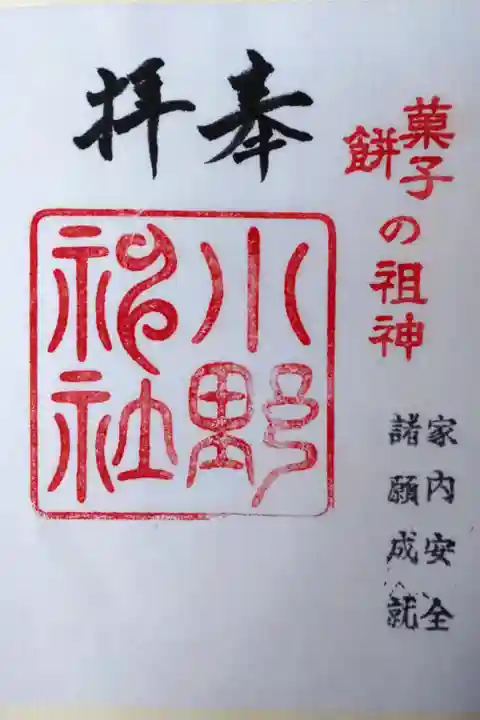 菓子
餅
の祖神
家内安全
諸願成就
奉
拝
小野
神社